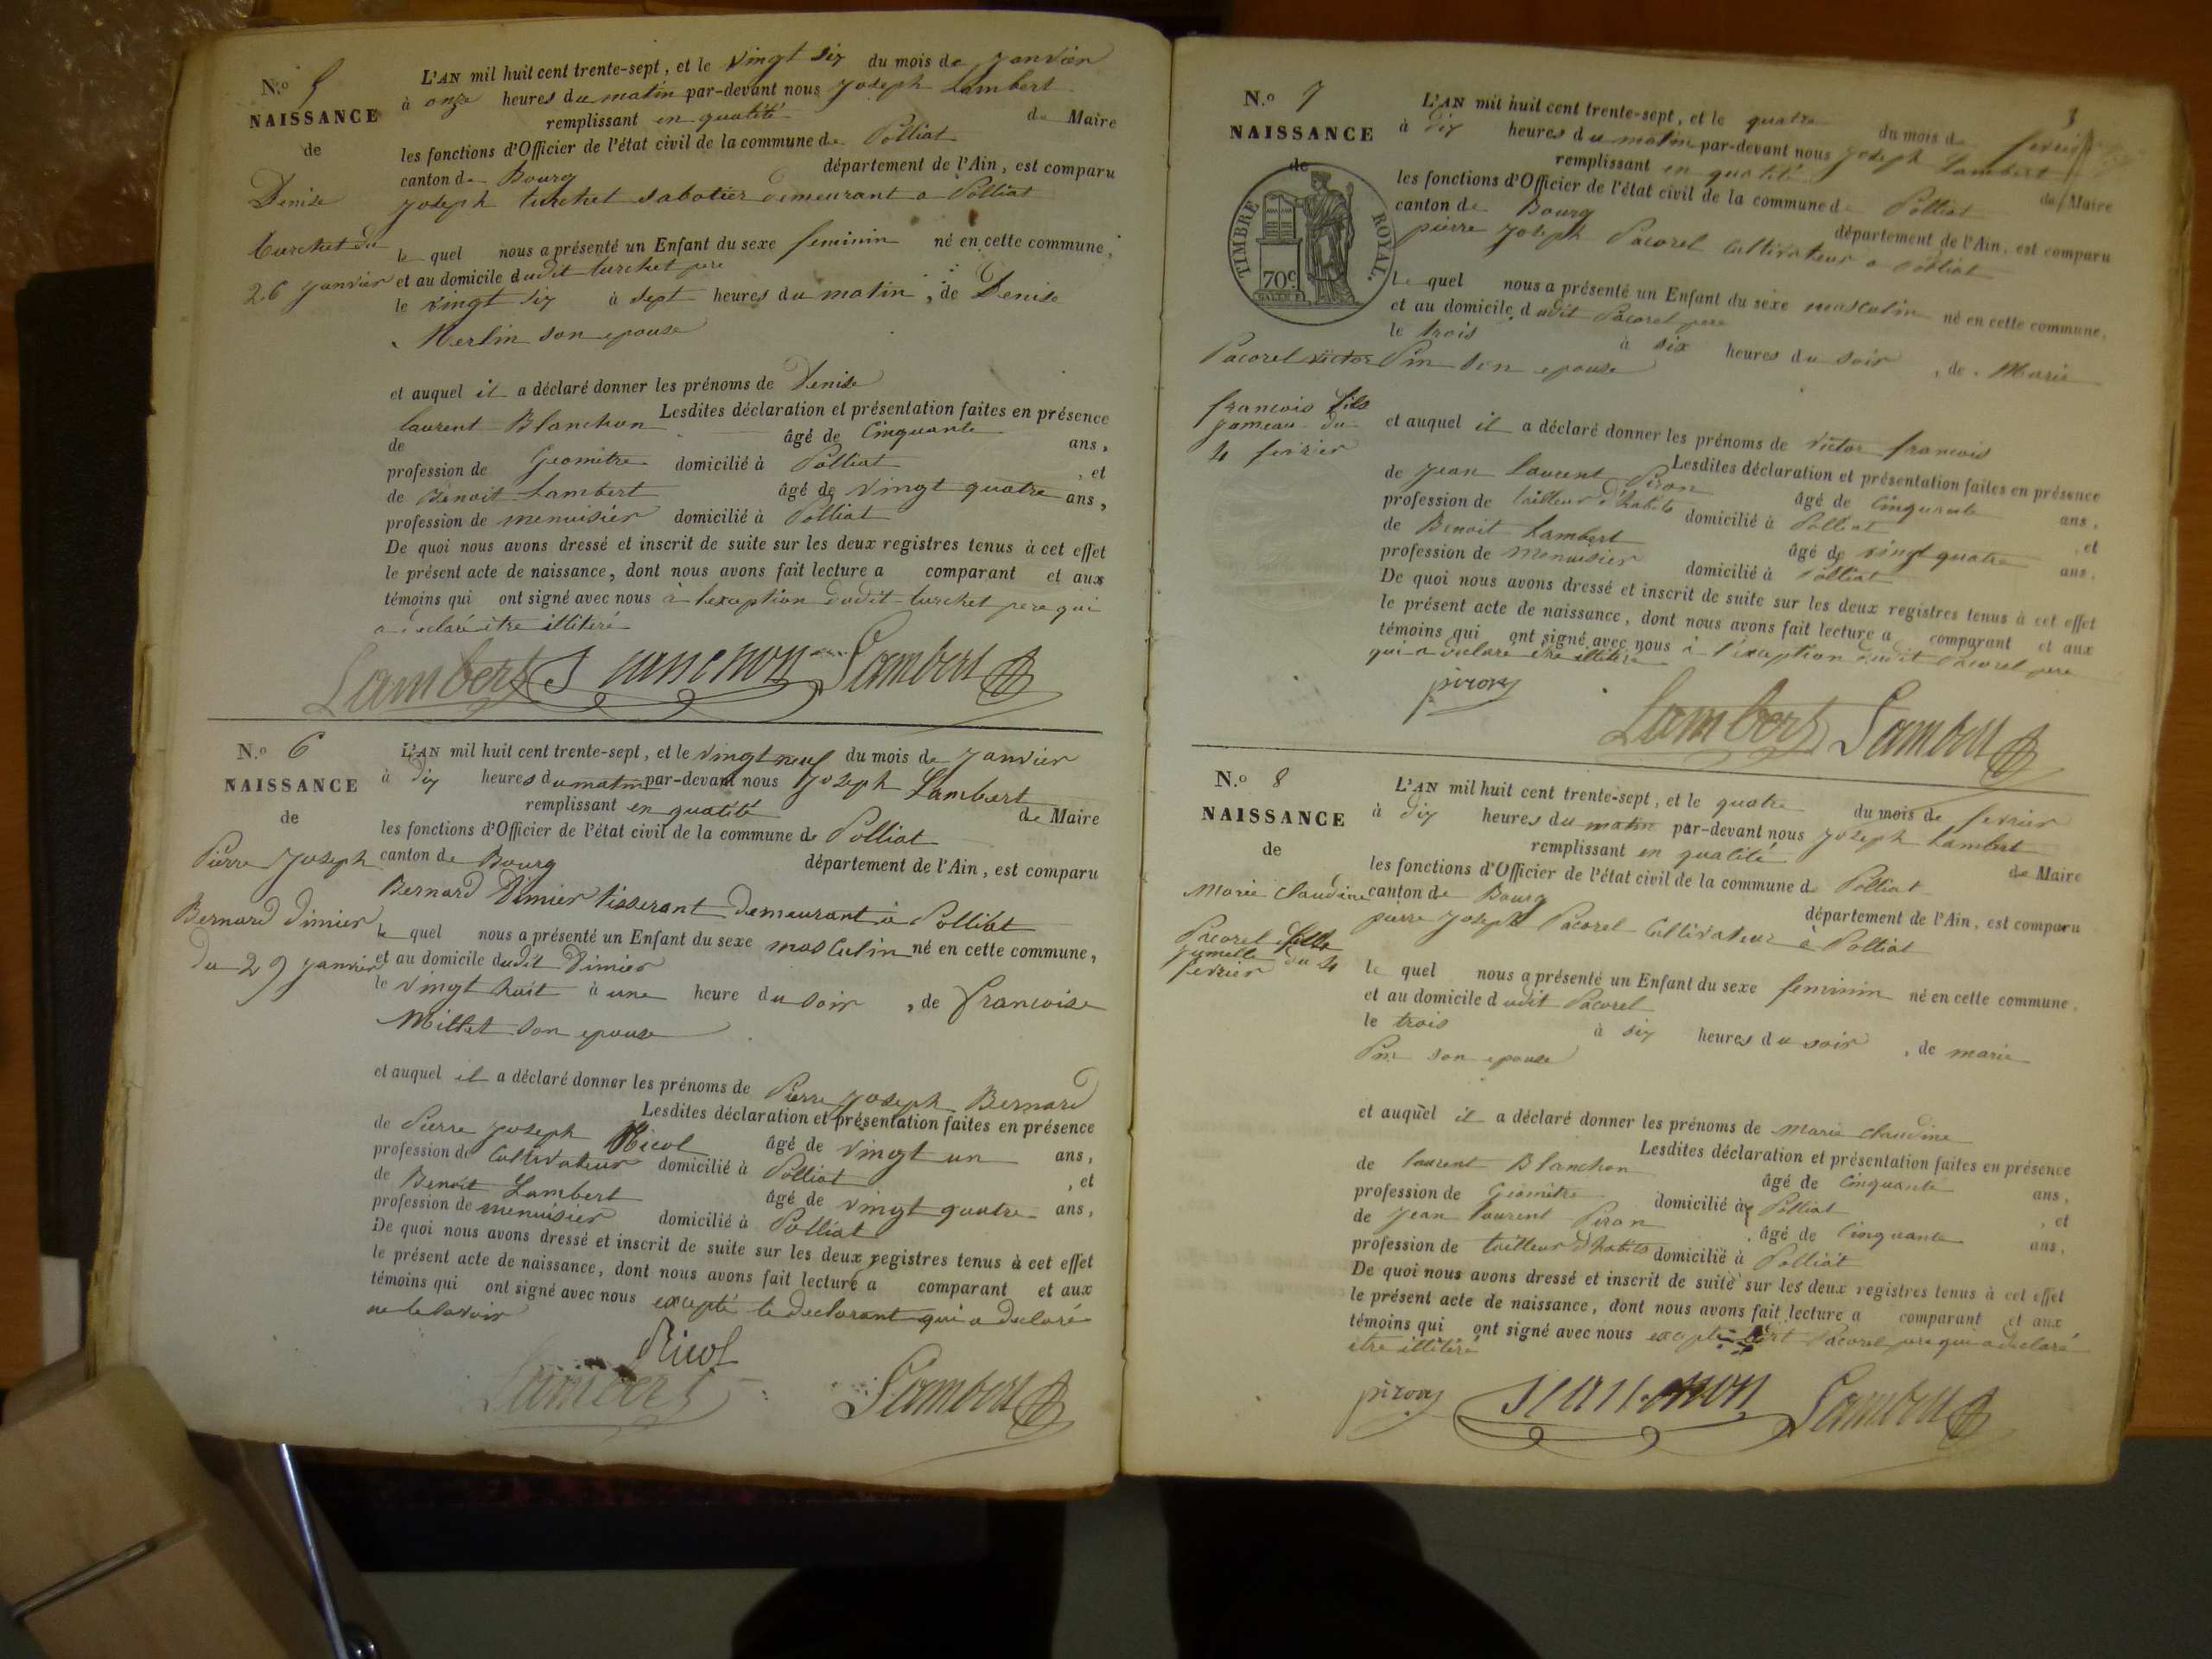 N.o 5
NAISSANCE
de
Denise
turchet du
26 janvier
L'AN mil huit cent trente-sept, et le vingt six du mois de janvier
à onze heures du matin par-devant nous joseph Lambert
remplissant en qualité de Maire
les fonctions d'Officier de l'état civil de la commune de Polliat
canton de Bourg département de l'Ain, est comparu
joseph turchet sabotier demeurant a Polliat
le quel nous a présenté un Enfant du sexe feminin né en cette commune,
et au domicile dudit turchet pere
le vingt six à sept heures du matin, de Denise
Merlin son epouse
et auquel il a déclaré donner les prénoms de Denise
Lesdites déclaration et présentation faites en présence
de laurent Blanchon âgé de Cinquante ans,
profession de Geometre domicilié à Polliat, et
de Benoit Lambert âgé de vingt quatre ans,
profession de menuisier domicilié à Polliat
De quoi nous avons dressé et inscrit de suite sur les deux registres tenus à cet effet
le présent acte de naissance, dont nous avons fait lecture a comparant et aux
témoins qui ont signé avec nous à l'exception dudit turchet pere qui
a declaré être illiteré
Lambert Blanchon Lambert
N.o 6
NAISSANCE
de
Pierre Joseph
Bernard Dimier
du 29 janvier
L'AN mil huit cent trente-sept, et le vingt neuf du mois de janvier
à dix heures du matin par-devant nous joseph Lambert
remplissant en qualité de Maire
les fonctions d'Officier de l'état civil de la commune de Polliat
canton de Bourg département de l'Ain, est comparu
Bernard Dimier tisserant demeurant à Polliat
le quel nous a présenté un Enfant du sexe masculin né en cette commune,
et au domicile dudit Dimier
le vingt huit à une heure du soir, de francoise
Millet son epouse
et auquel il a déclaré donner les prénoms de Pierre joseph Bernard
Lesdites déclaration et présentation faites en présence
de Pierre joseph Nicol âgé de vingt un ans,
profession de Cultivateur domicilié à Polliat, et
de Benoit Lambert âgé de vingt quatre ans,
profession de menuisier domicilié à Polliat
De quoi nous avons dressé et inscrit de suite sur les deux registres tenus à cet effet
le présent acte de naissance, dont nous avons fait lecture a comparant et aux
témoins qui ont signé avec nous excepté le declarant qui a declaré
ne le savoir
Nicol
Lambert Lambert
3
N.o 7
NAISSANCE
de
TIMBRE ROYAL.
70c
Pacorel victor
francois fils
jameau du
4 fevrier
L'AN mil huit cent trente-sept, et le quatre du mois de fevrier
à dix heures du matin par-devant nous joseph Lambert
remplissant en qualité de Maire
les fonctions d'Officier de l'état civil de la commune de Polliat
canton de Bourg département de l'Ain, est comparu
pierre joseph Pacorel Cultivateur a Polliat
le quel nous a présenté un Enfant du sexe masculin né en cette commune,
et au domicile dudit Pacorel pere
le trois à six heures du soir, de Marie
Pin son epouse
et auquel il a déclaré donner les prénoms de victor francois
Lesdites déclaration et présentation faites en présence
de jean laurent Piron âgé de Cinquante ans,
profession de tailleur d'habits domicilié à Polliat, et
de Benoit Lambert âgé de vingt quatre ans,
profession de Menuisier domicilié à Polliat
De quoi nous avons dressé et inscrit de suite sur les deux registres tenus à cet effet
le présent acte de naissance, dont nous avons fait lecture a comparant et aux
témoins qui ont signé avec nous à l'exception dudit Pacorel pere
qui a declaré être illiteré
piron
Lambert Lambert
N.o 8
NAISSANCE
de
Marie Claudine
Pacorel fille
jumelle du 4
fevrier
L'AN mil huit cent trente-sept, et le quatre du mois de fevrier
à dix heures du matin par-devant nous joseph Lambert
remplissant en qualité de Maire
les fonctions d'Officier de l'état civil de la commune de Polliat
canton de Bourg département de l'Ain, est comparu
pierre joseph Pacorel Cultivateur à Polliat
le quel nous a présenté un Enfant du sexe feminin né en cette commune,
et au domicile dudit Pacorel
le trois à six heures du soir, de marie
Pin son epouse
et auquel il a déclaré donner les prénoms de marie claudine
Lesdites déclaration et présentation faites en présence
de laurent Blanchon âgé de Cinquante ans,
profession de Geometre domicilié à Polliat, et
de jean laurent Piron âgé de Cinquante ans,
profession de tailleur d'habits domicilié à Polliat
De quoi nous avons dressé et inscrit de suite sur les deux registres tenus à cet effet
le présent acte de naissance, dont nous avons fait lecture a comparant et aux
témoins qui ont signé avec nous excepté Pacorel pere qui a declaré
etre illiteré
piron Blanchon Lambert